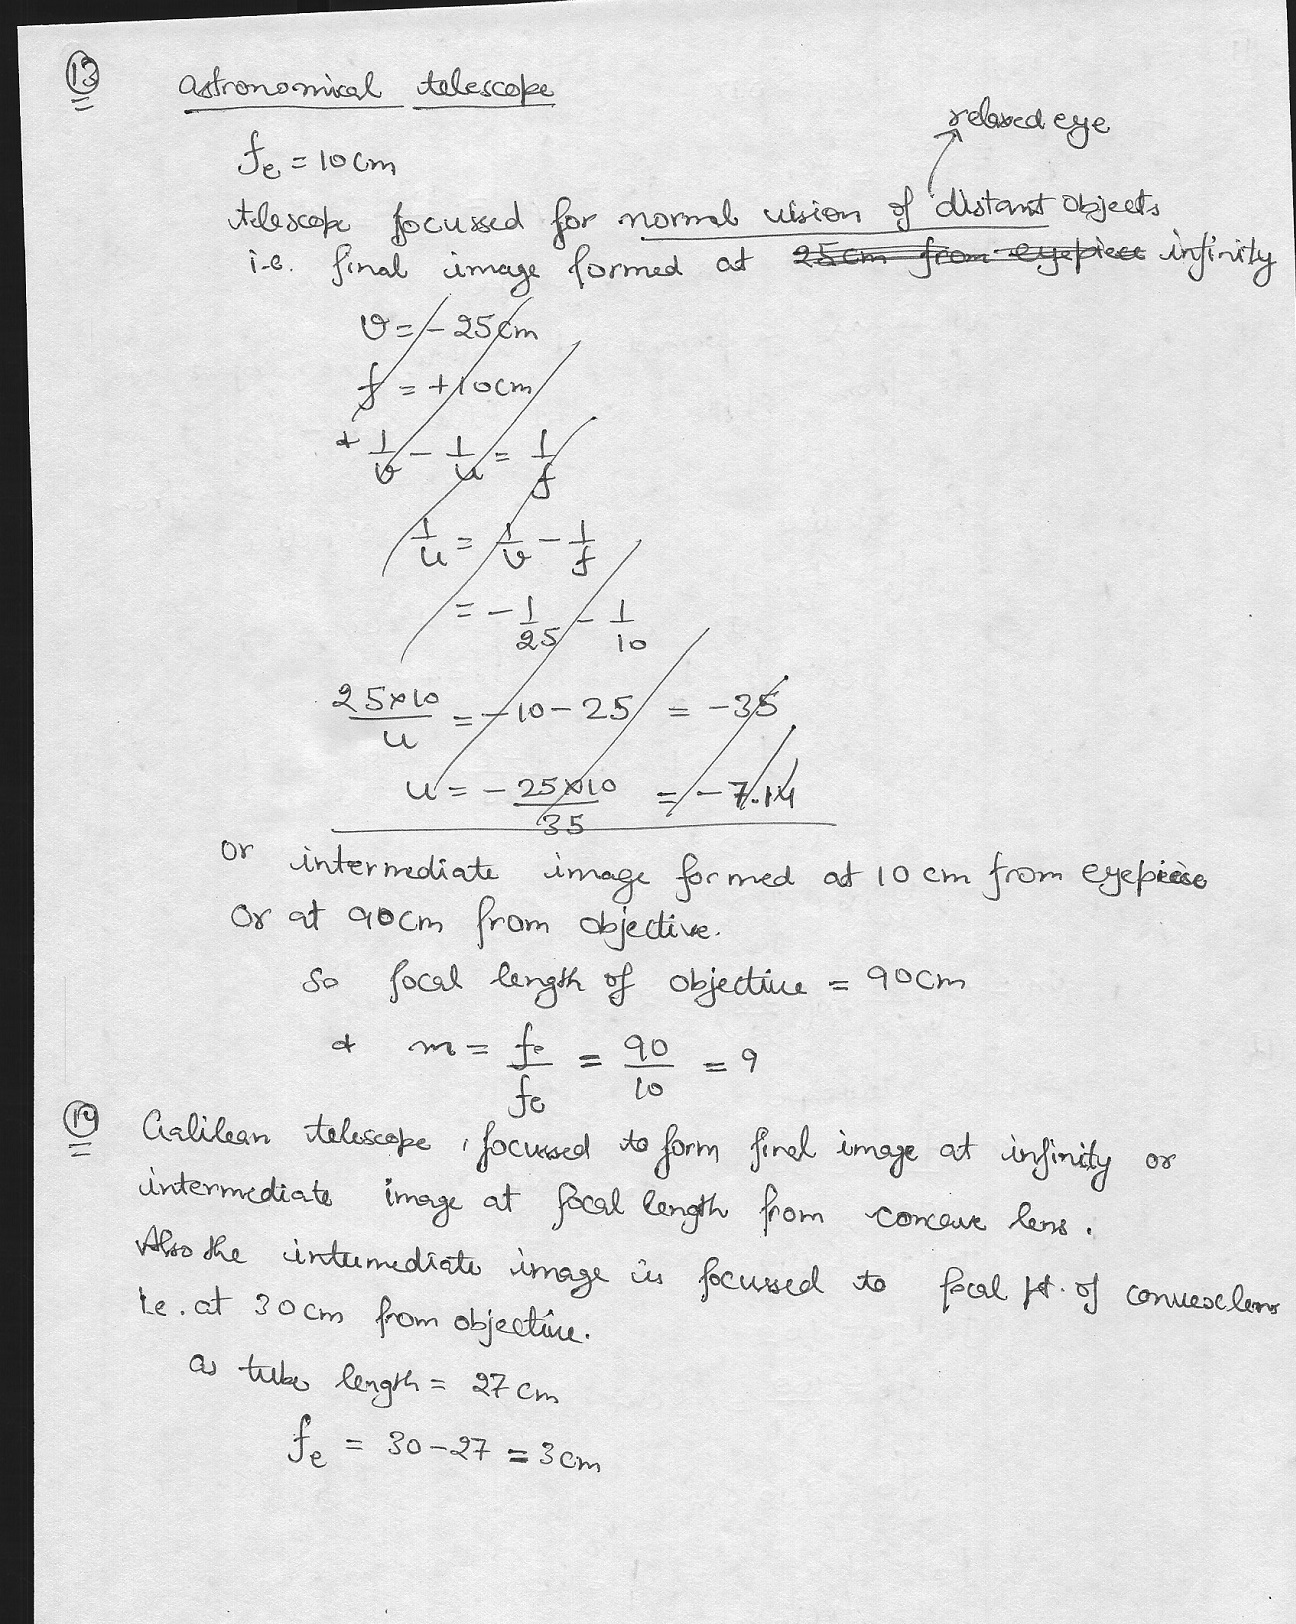 13
Astronomical telescope
relaxed eye
fe = 10cm
telescope focussed for normal vision of distant objects
i.e. final image formed at 25cm from eyepiece infinity
v = -25cm
f = +10cm
& 1/v - 1/u = 1/f
1/u = 1/v - 1/f
= -1/25 - 1/10
25×10/u = -10-25 = -35
u = - 25×10/35 = -7.14
or intermediate image formed at 10 cm from eyepiece
Or at 90cm from objective.
So focal length of objective = 90cm
& m = fo/fe = 90/10 = 9
14
Galilean telescope, focussed to form final image at infinity or
intermediate image at focal length from concave lens.
Also the intermediate image is focussed to focal pt. of convex lens
i.e. at 30cm from objective.
as tube length = 27cm
fe = 30-27 = 3cm